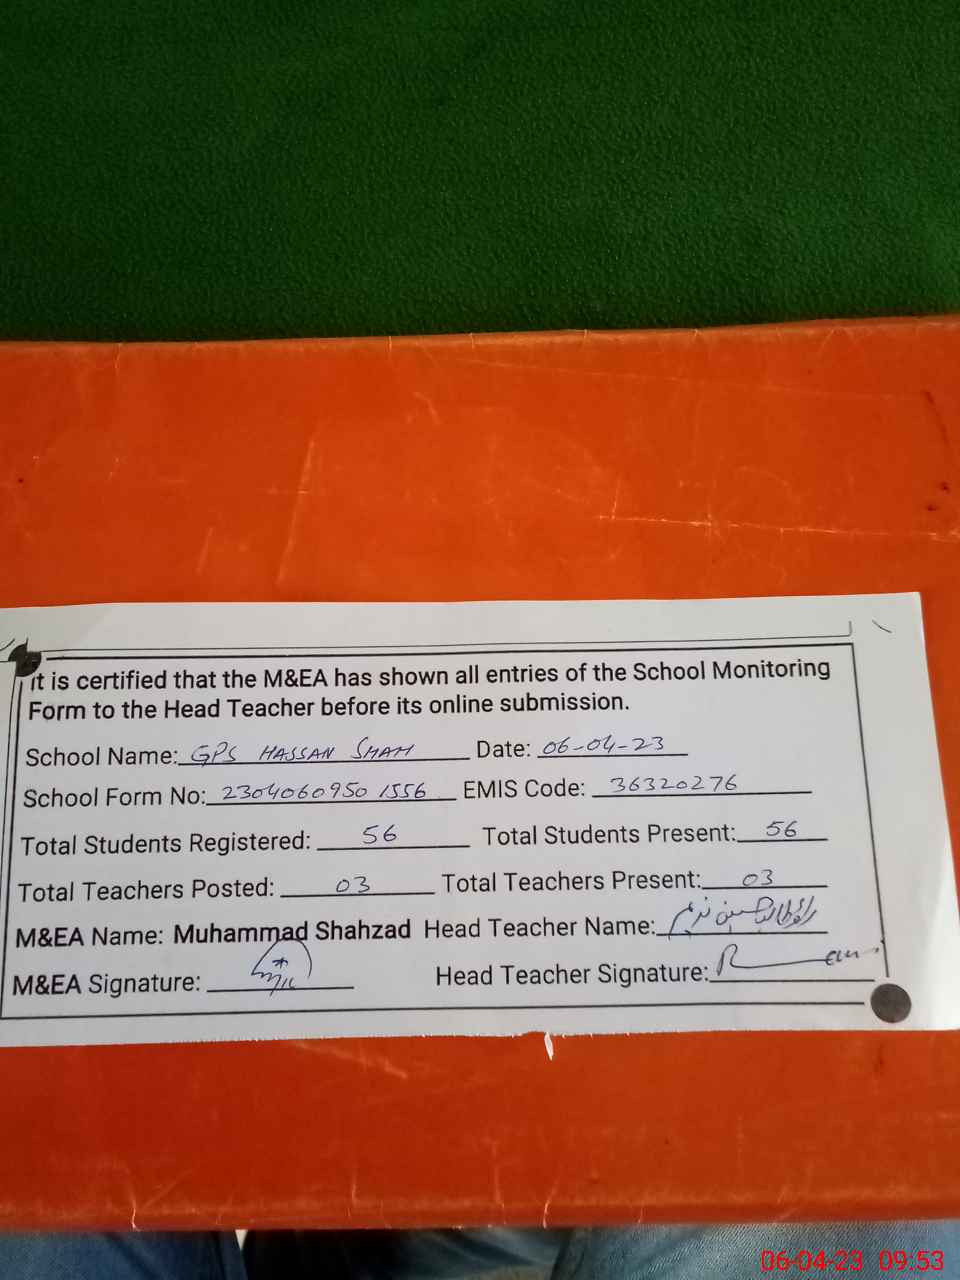 It is certified that the M&EA has shown all entries of the School Monitoring
Form to the Head Teacher before its online submission.
School Name: GPS HASSAN SHAH Date: 06-04-23
School Form No: 2304060950 1556 EMIS Code: 36320276
Total Students Registered: 56 Total Students Present: 56
Total Teachers Posted: 03 Total Teachers Present: 03
M&EA Name: Muhammad Shahzad Head Teacher Name:
M&EA Signature: Head Teacher Signature:
06-04-23 09:53